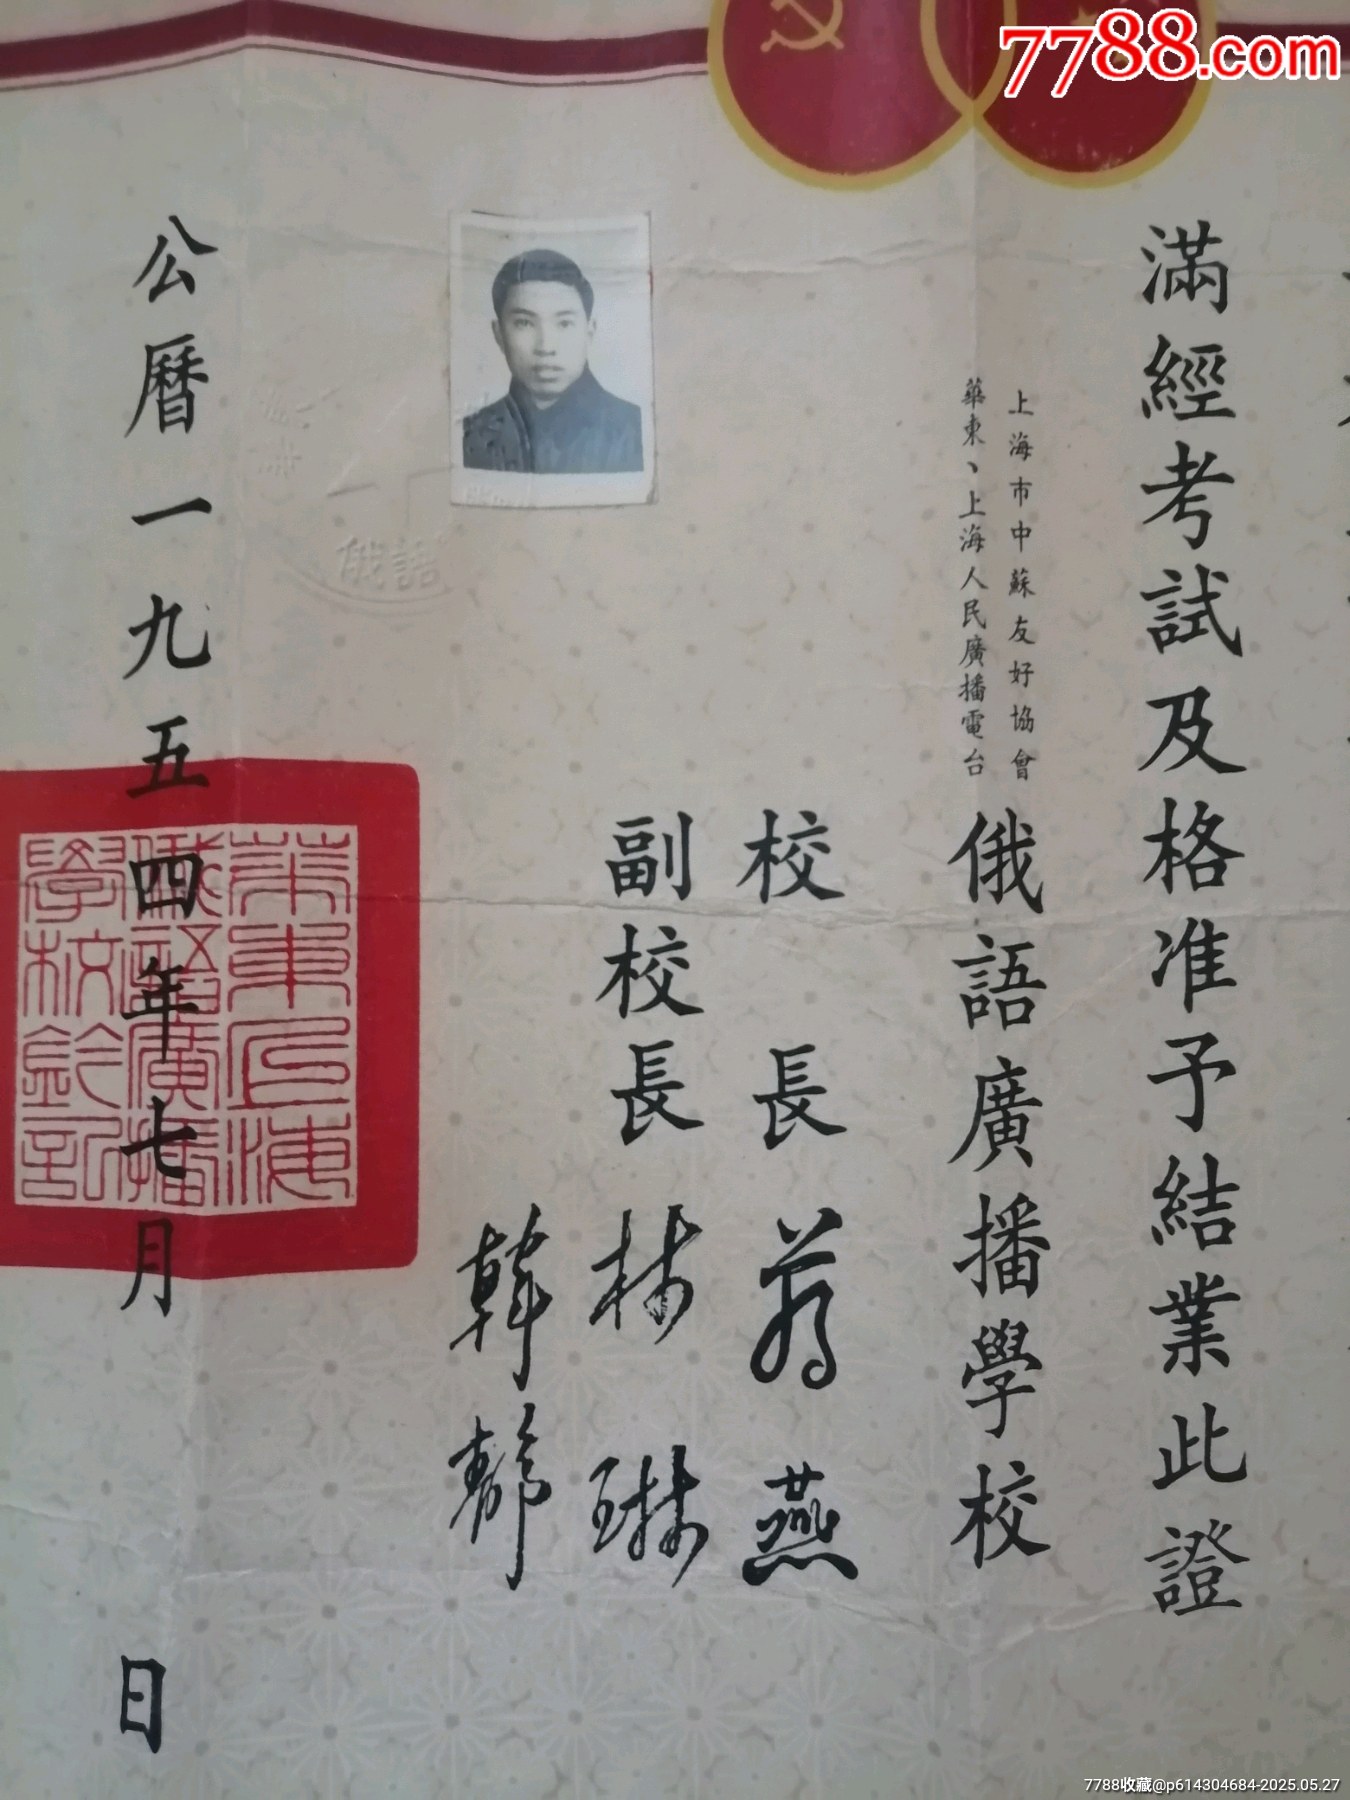 7788.com
滿經考試及格准予結業此證
上海市中蘇友好協會
華東、上海人民廣播電台
俄語廣播學校
校長
副校長 林琳
公曆一九五四年七月 日
華東上海
俄語廣播
學校鈐記
俄語
7788收藏@p614304684-2025.05.27